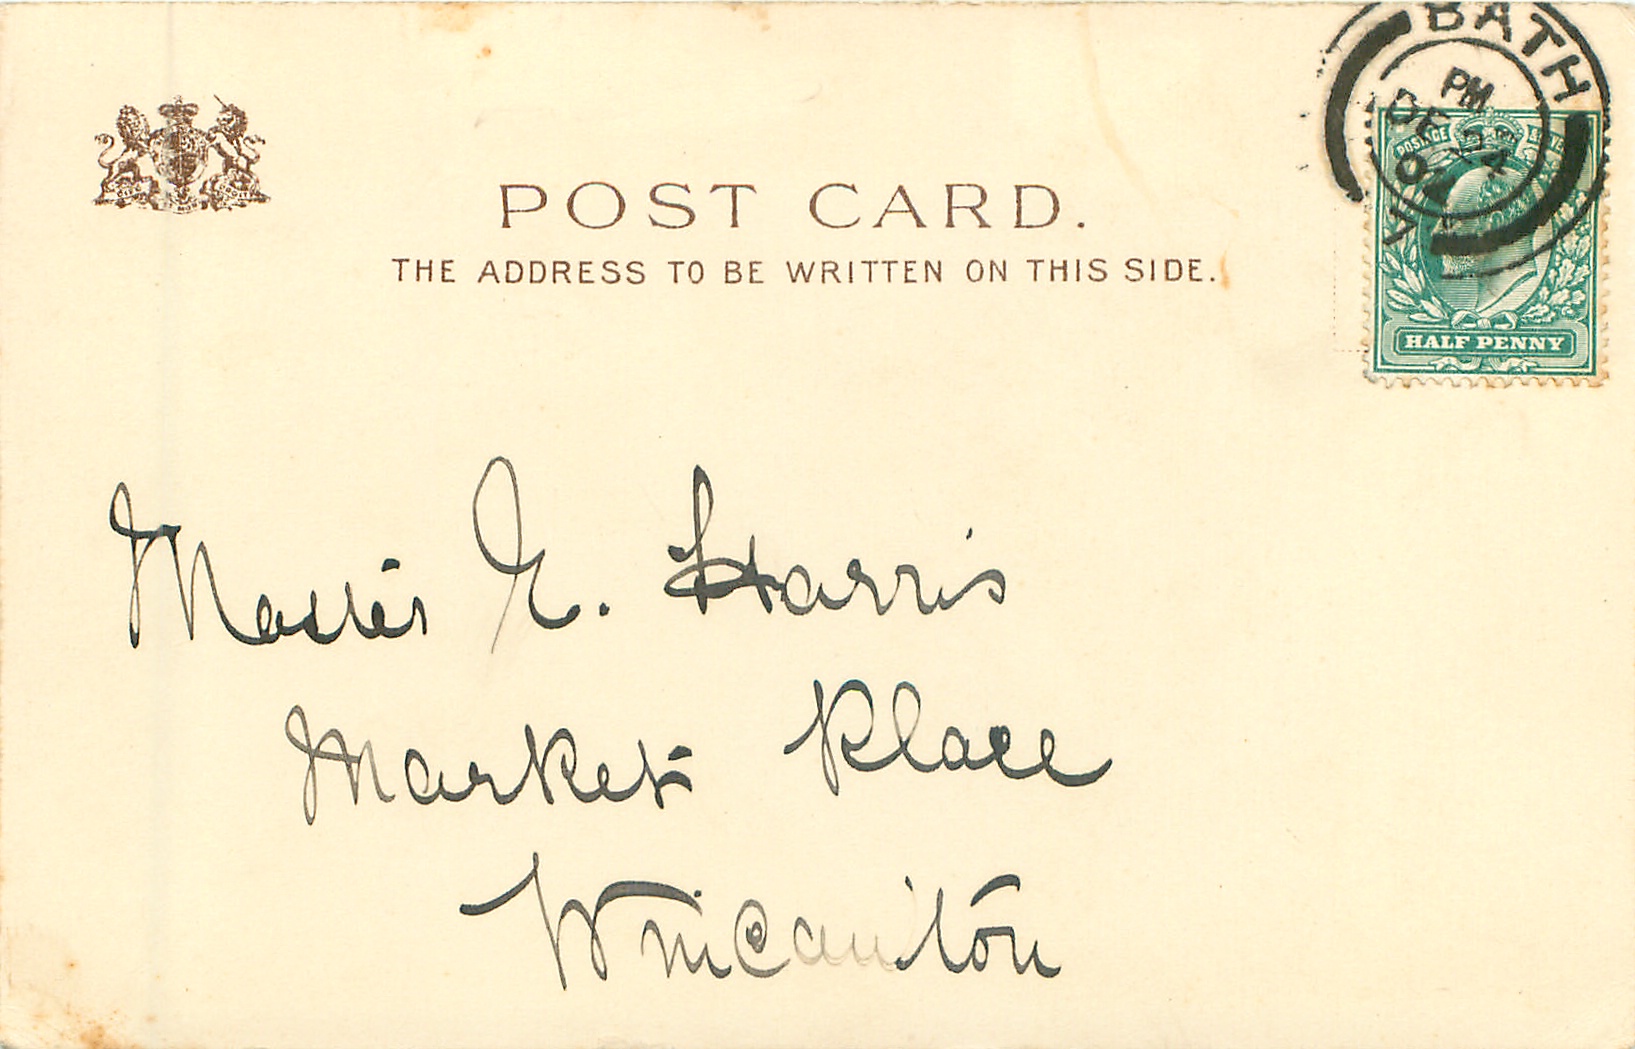 BATH
PM
DE 24
02
POSTAGE
POST CARD.
THE ADDRESS TO BE WRITTEN ON THIS SIDE.
HALF PENNY
Master E. Harris
Market Place
Wincanton